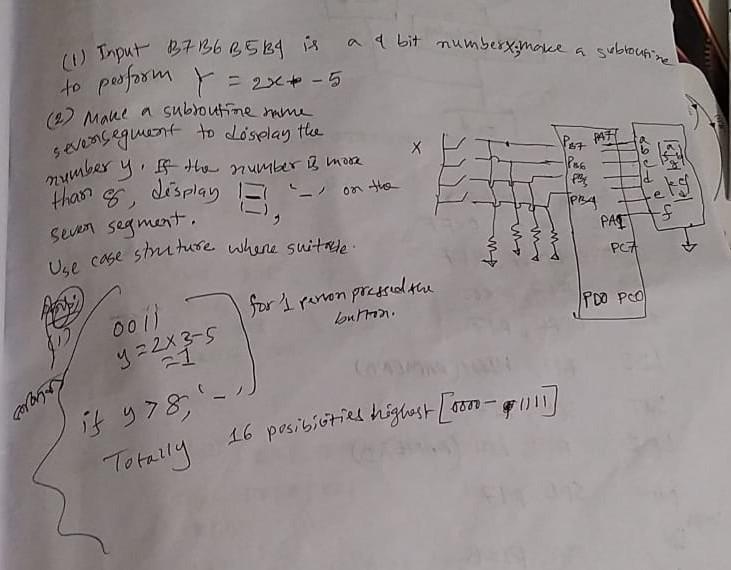 (1) Input B7B6 B5B4 is a 4 bit number x; make a subroutine
to perform Y = 2x - 5
(2) Make a subroutine name
sevensegment to display the
number y. If the number is more
than 8, display , '-' on the
seven segment.
Use case struture where suitable.
X
PB7
PB6
PB5
PB4
PA7
PA1
PC7
PD0 PC0
a
b
c
d
e
f
0011
y = 2x3-5
= 1
for 1 person pressed the
button.
if y > 8, '-'
Totally 16 posibioties highest [0000 - 1111]